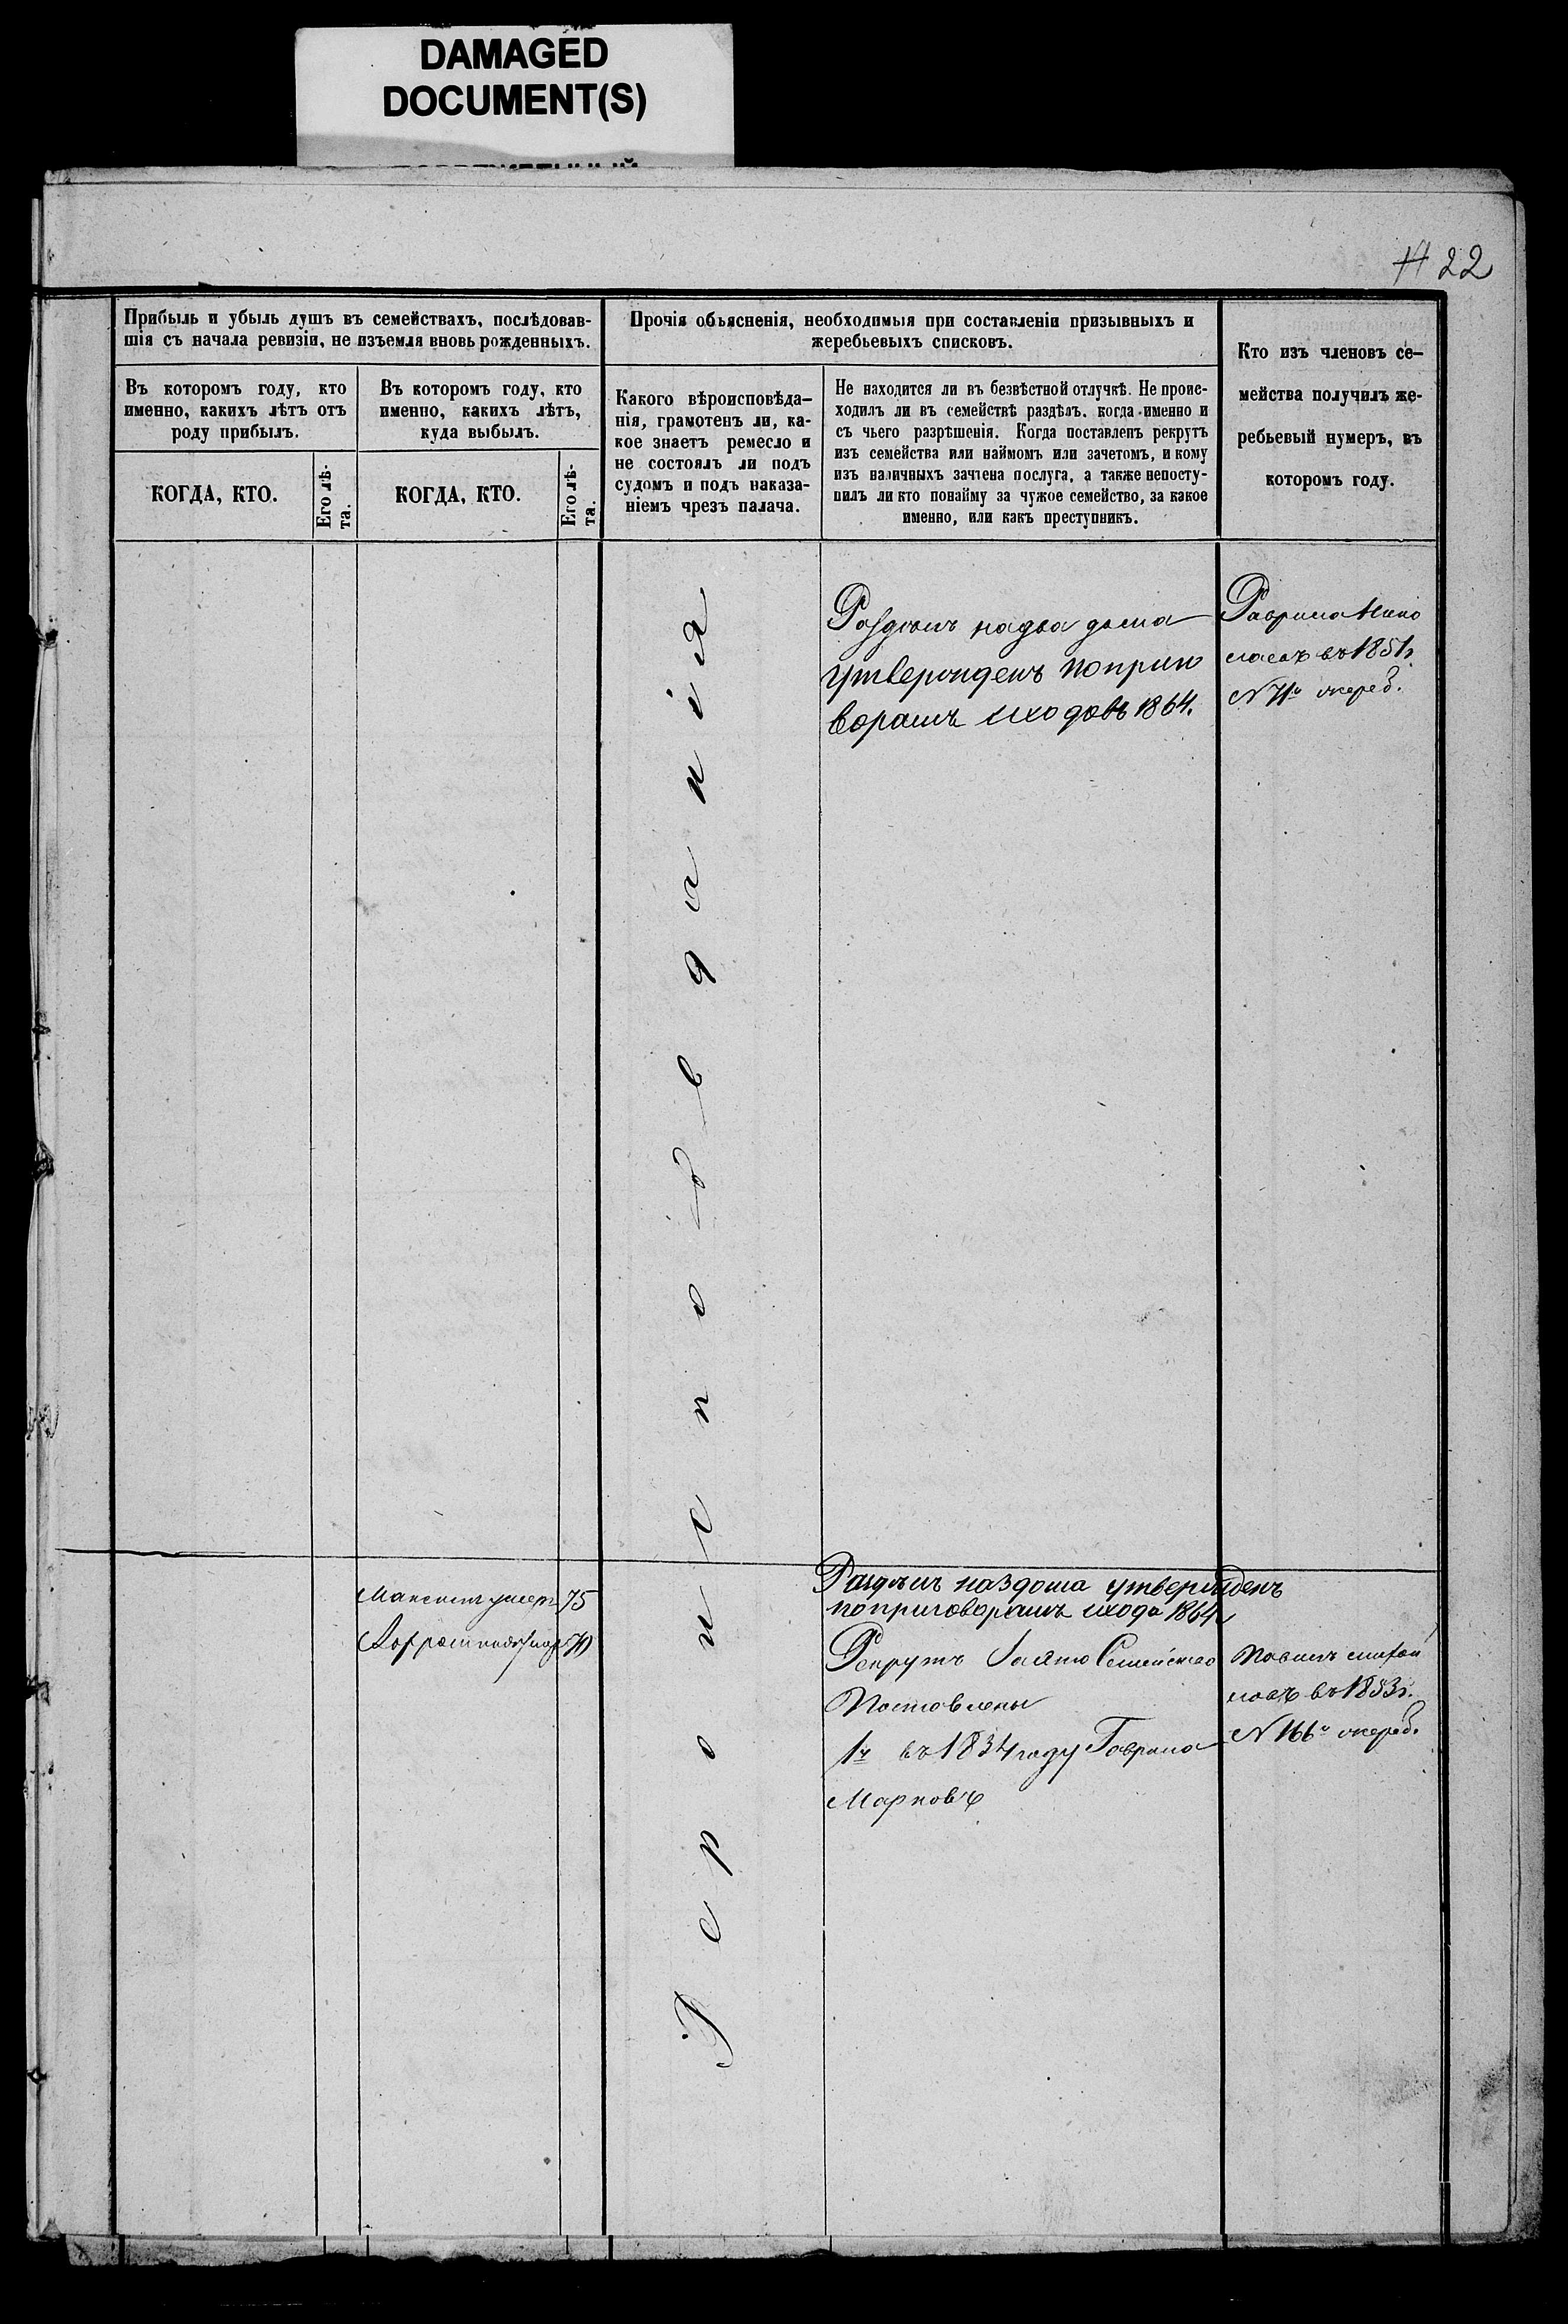 DAMAGED
DOCUMENT(S)
22
Прибыль и убыль душъ въ семействахъ, послѣдовав-
шія съ начала ревизіи, не изъемля вновь рожденныхъ.
Прочія объясненія, необходимыя при составленіи призывныхъ и
жеребьевыхъ списковъ.
Кто изъ членовъ се-
мейства получилъ же-
ребьевый нумеръ, въ
которомъ году.
Въ которомъ году, кто
именно, какихъ лѣтъ отъ
роду прибылъ.
Въ которомъ году, кто
именно, какихъ лѣтъ,
куда выбылъ.
Какого вѣроисповѣда-
нія, грамотенъ ли, ка-
кое знаетъ ремесло и
не состоялъ ли подъ
судомъ и подъ наказа-
ніемъ чрезъ палача.
Не находится ли въ безвѣстной отлучкѣ. Не проис-
ходилъ ли въ семействѣ раздѣлъ, когда именно и
съ чьего разрѣшенія. Когда поставленъ рекрутъ
изъ семейства или наймомъ или зачетомъ, и кому
изъ наличныхъ зачтена послуга, а также непосту-
пилъ ли кто понайму за чужое семейство, за какое
именно, или какъ преступникъ.
КОГДА, КТО.
Его лѣ-
та.
КОГДА, КТО.
Его лѣ-
та.
Раздѣлъ надва дома
утвержденъ поприго
ворамъ схода въ 1864.
Гаврила Нико
лаевъ въ 1851г.
N 71й очеред.
Раздѣлъ на 3 дома утвержденъ
поприговорамъ схода 1864
Максимъ умер. 75
70
Рекрутъ Семейство
Поставлены
1й въ 1834 году Гаврила
Марковъ
въ 1853г.
N 166й очеред.